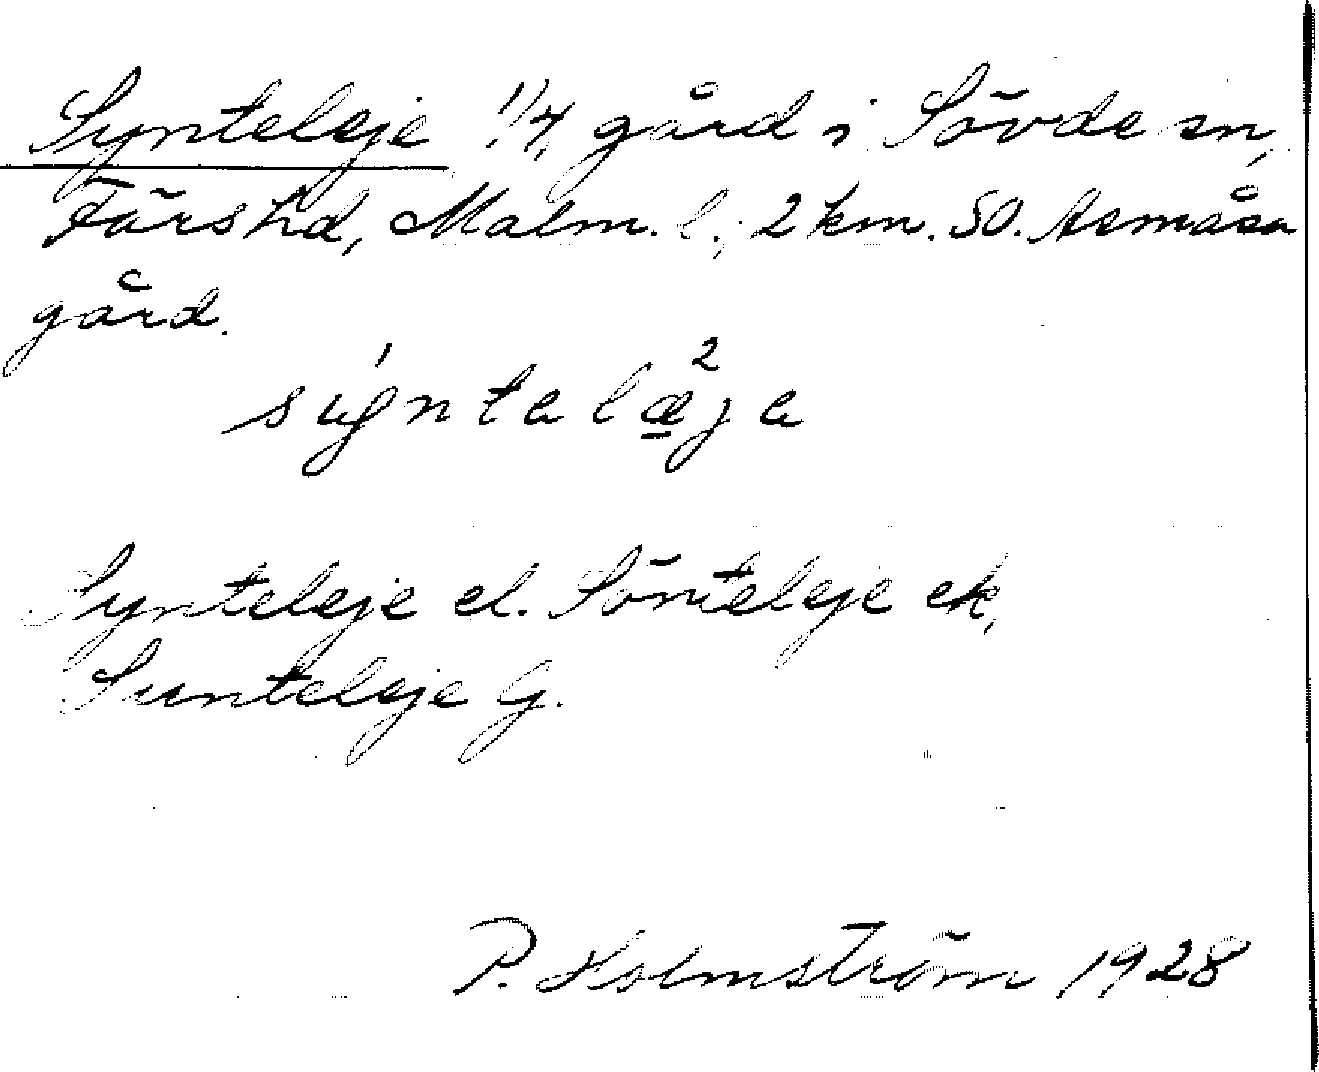 Synteleje 1/4, gård i Sövde sn,
Färs hd, Malm. l.; 2 km. SO. Asmåsa
gård.
sýntalæ̱²ja
Synteleje el. Sönteleje ek,
Sunteleje G.
P. Holmström 1928